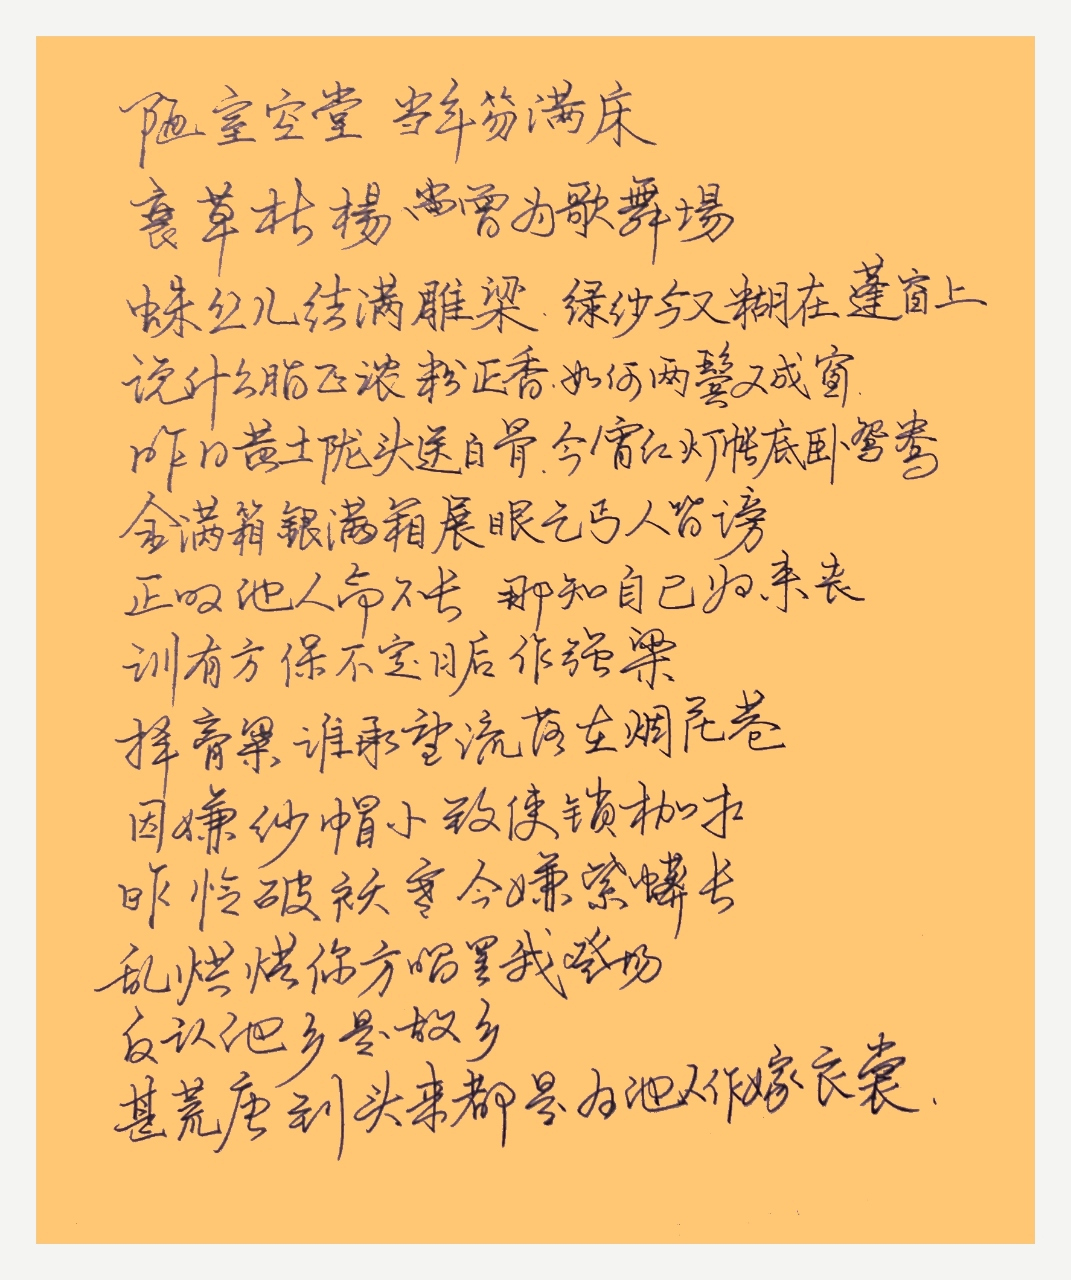 陋室空堂 当年笏满床
衰草枯楊 曾为歌舞場
蛛丝儿结满雕梁.绿纱今又糊在蓬窗上
说什么脂正浓粉正香.如何两鬓又成霜.
昨日黄土陇头送白骨.今宵红灯帐底卧鸳鸯
金满箱銀满箱展眼乞丐人皆谤
正叹他人命不长 那知自己归来丧
训有方保不定日后作强梁
择膏粱 谁承望流落在烟花巷
因嫌纱帽小致使锁枷扛
昨怜破袄寒今嫌紫蟒长
乱烘烘你方唱罢我登场
反认他乡是故乡
甚荒唐到头来都是为他人作嫁衣裳.